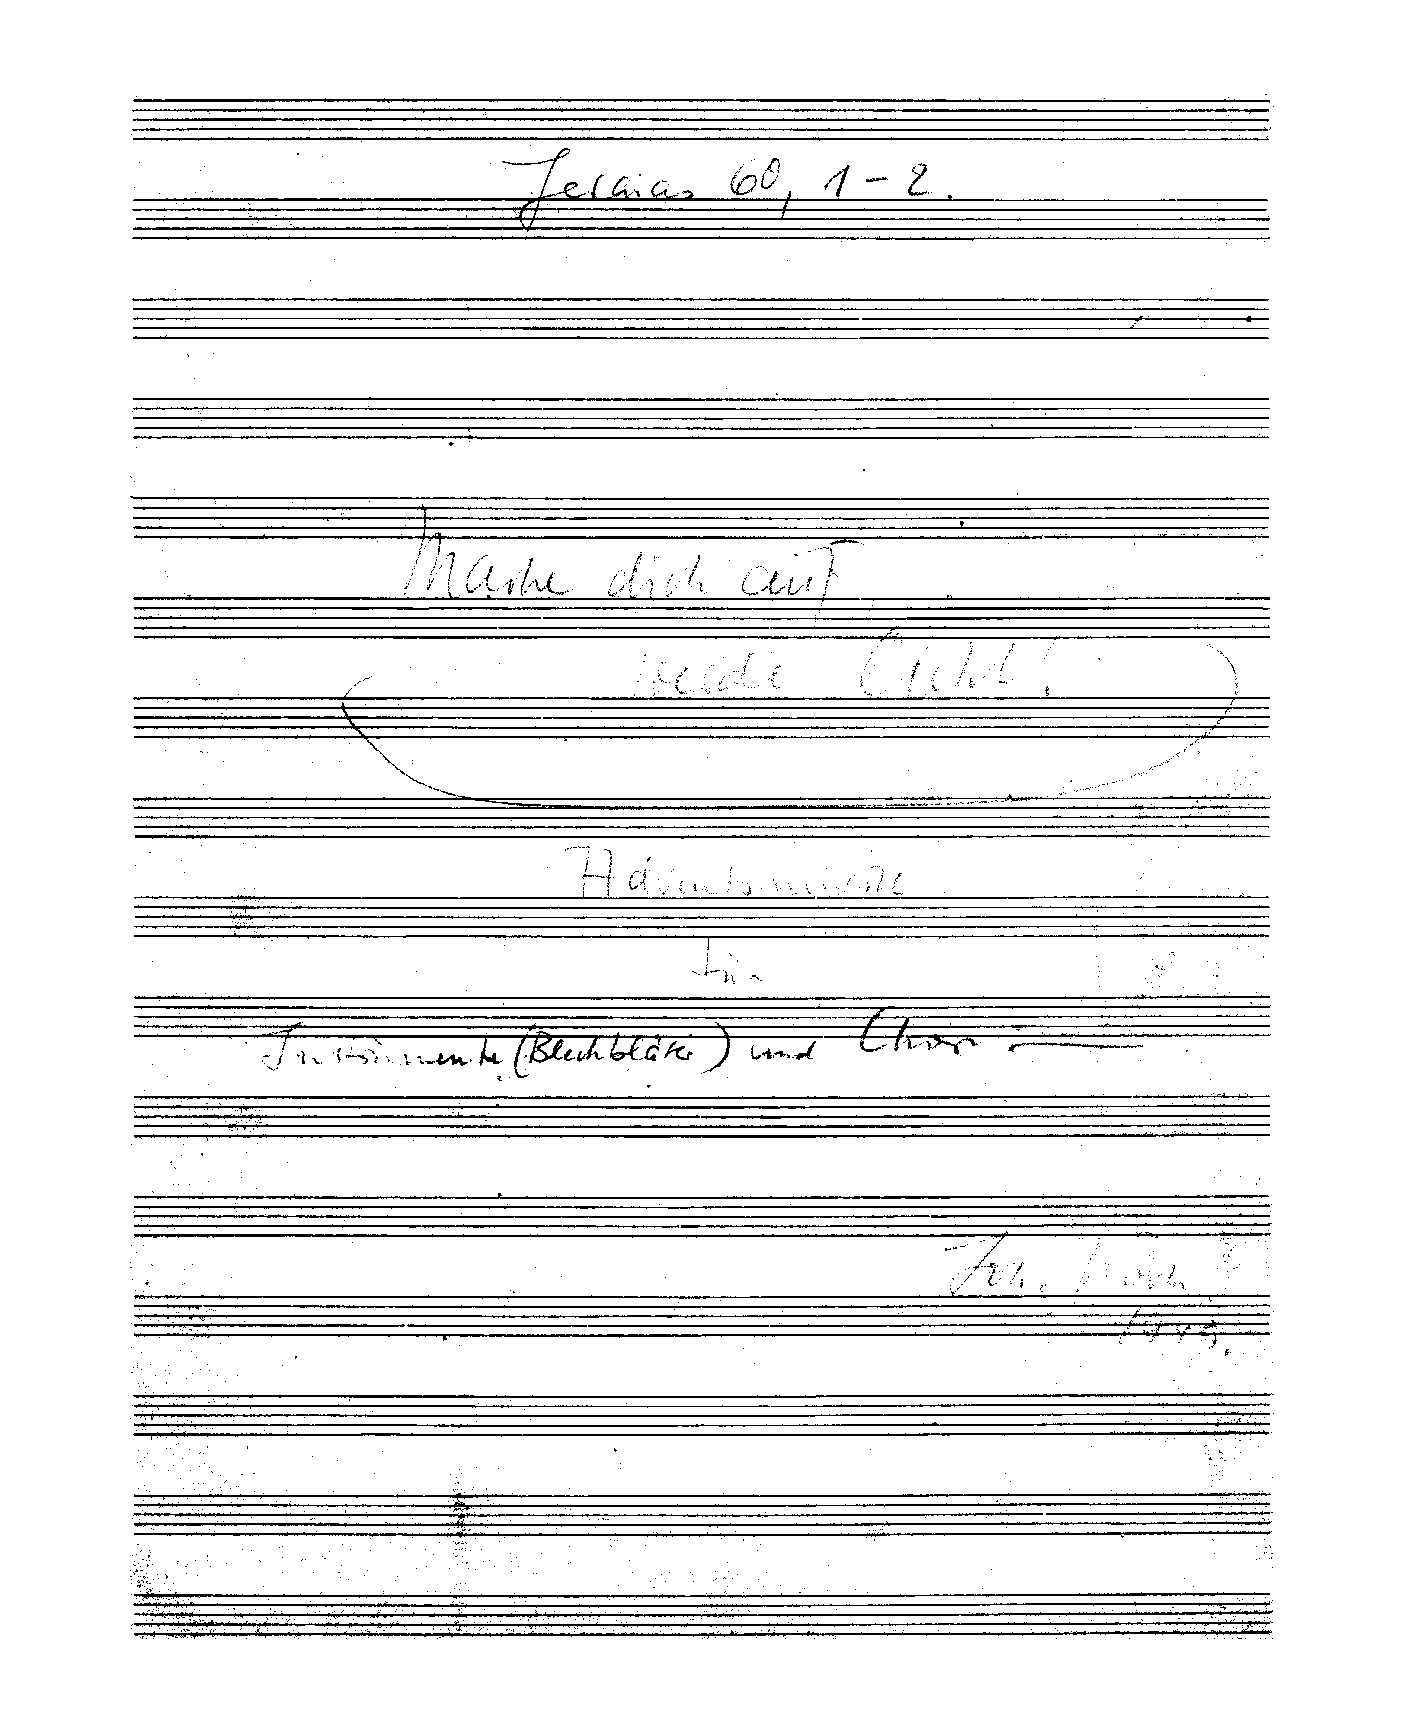 Jesaias 60, 1-2.
Mache dich auf
werde Licht!
Adventsmusik
für
Instrumente (Blechbläser) und Chor
Joh. Koch